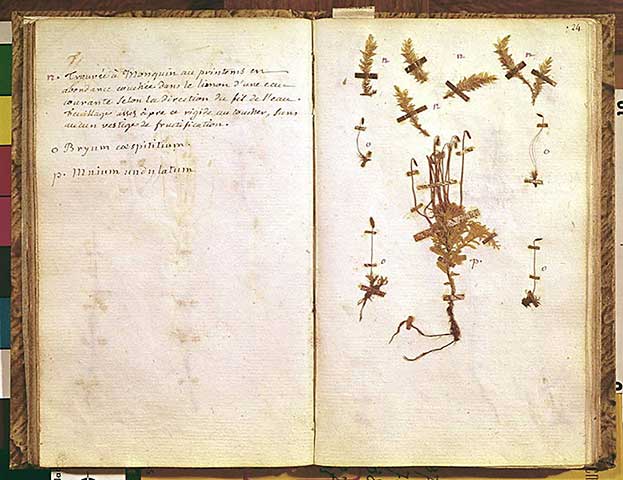 n. Trouvée à Monquin au printems en
abondance couchée dans le limon d'une eau
courante selon la direction du fil de l'eau.
feuillage assés âpre et rigide au toucher, sans
aucun vestige de frustification.
o Bryum cœspititium.
p. Mnium undulatum
24
n.
n.
n.
n.
n.
o
o
o
o
p.